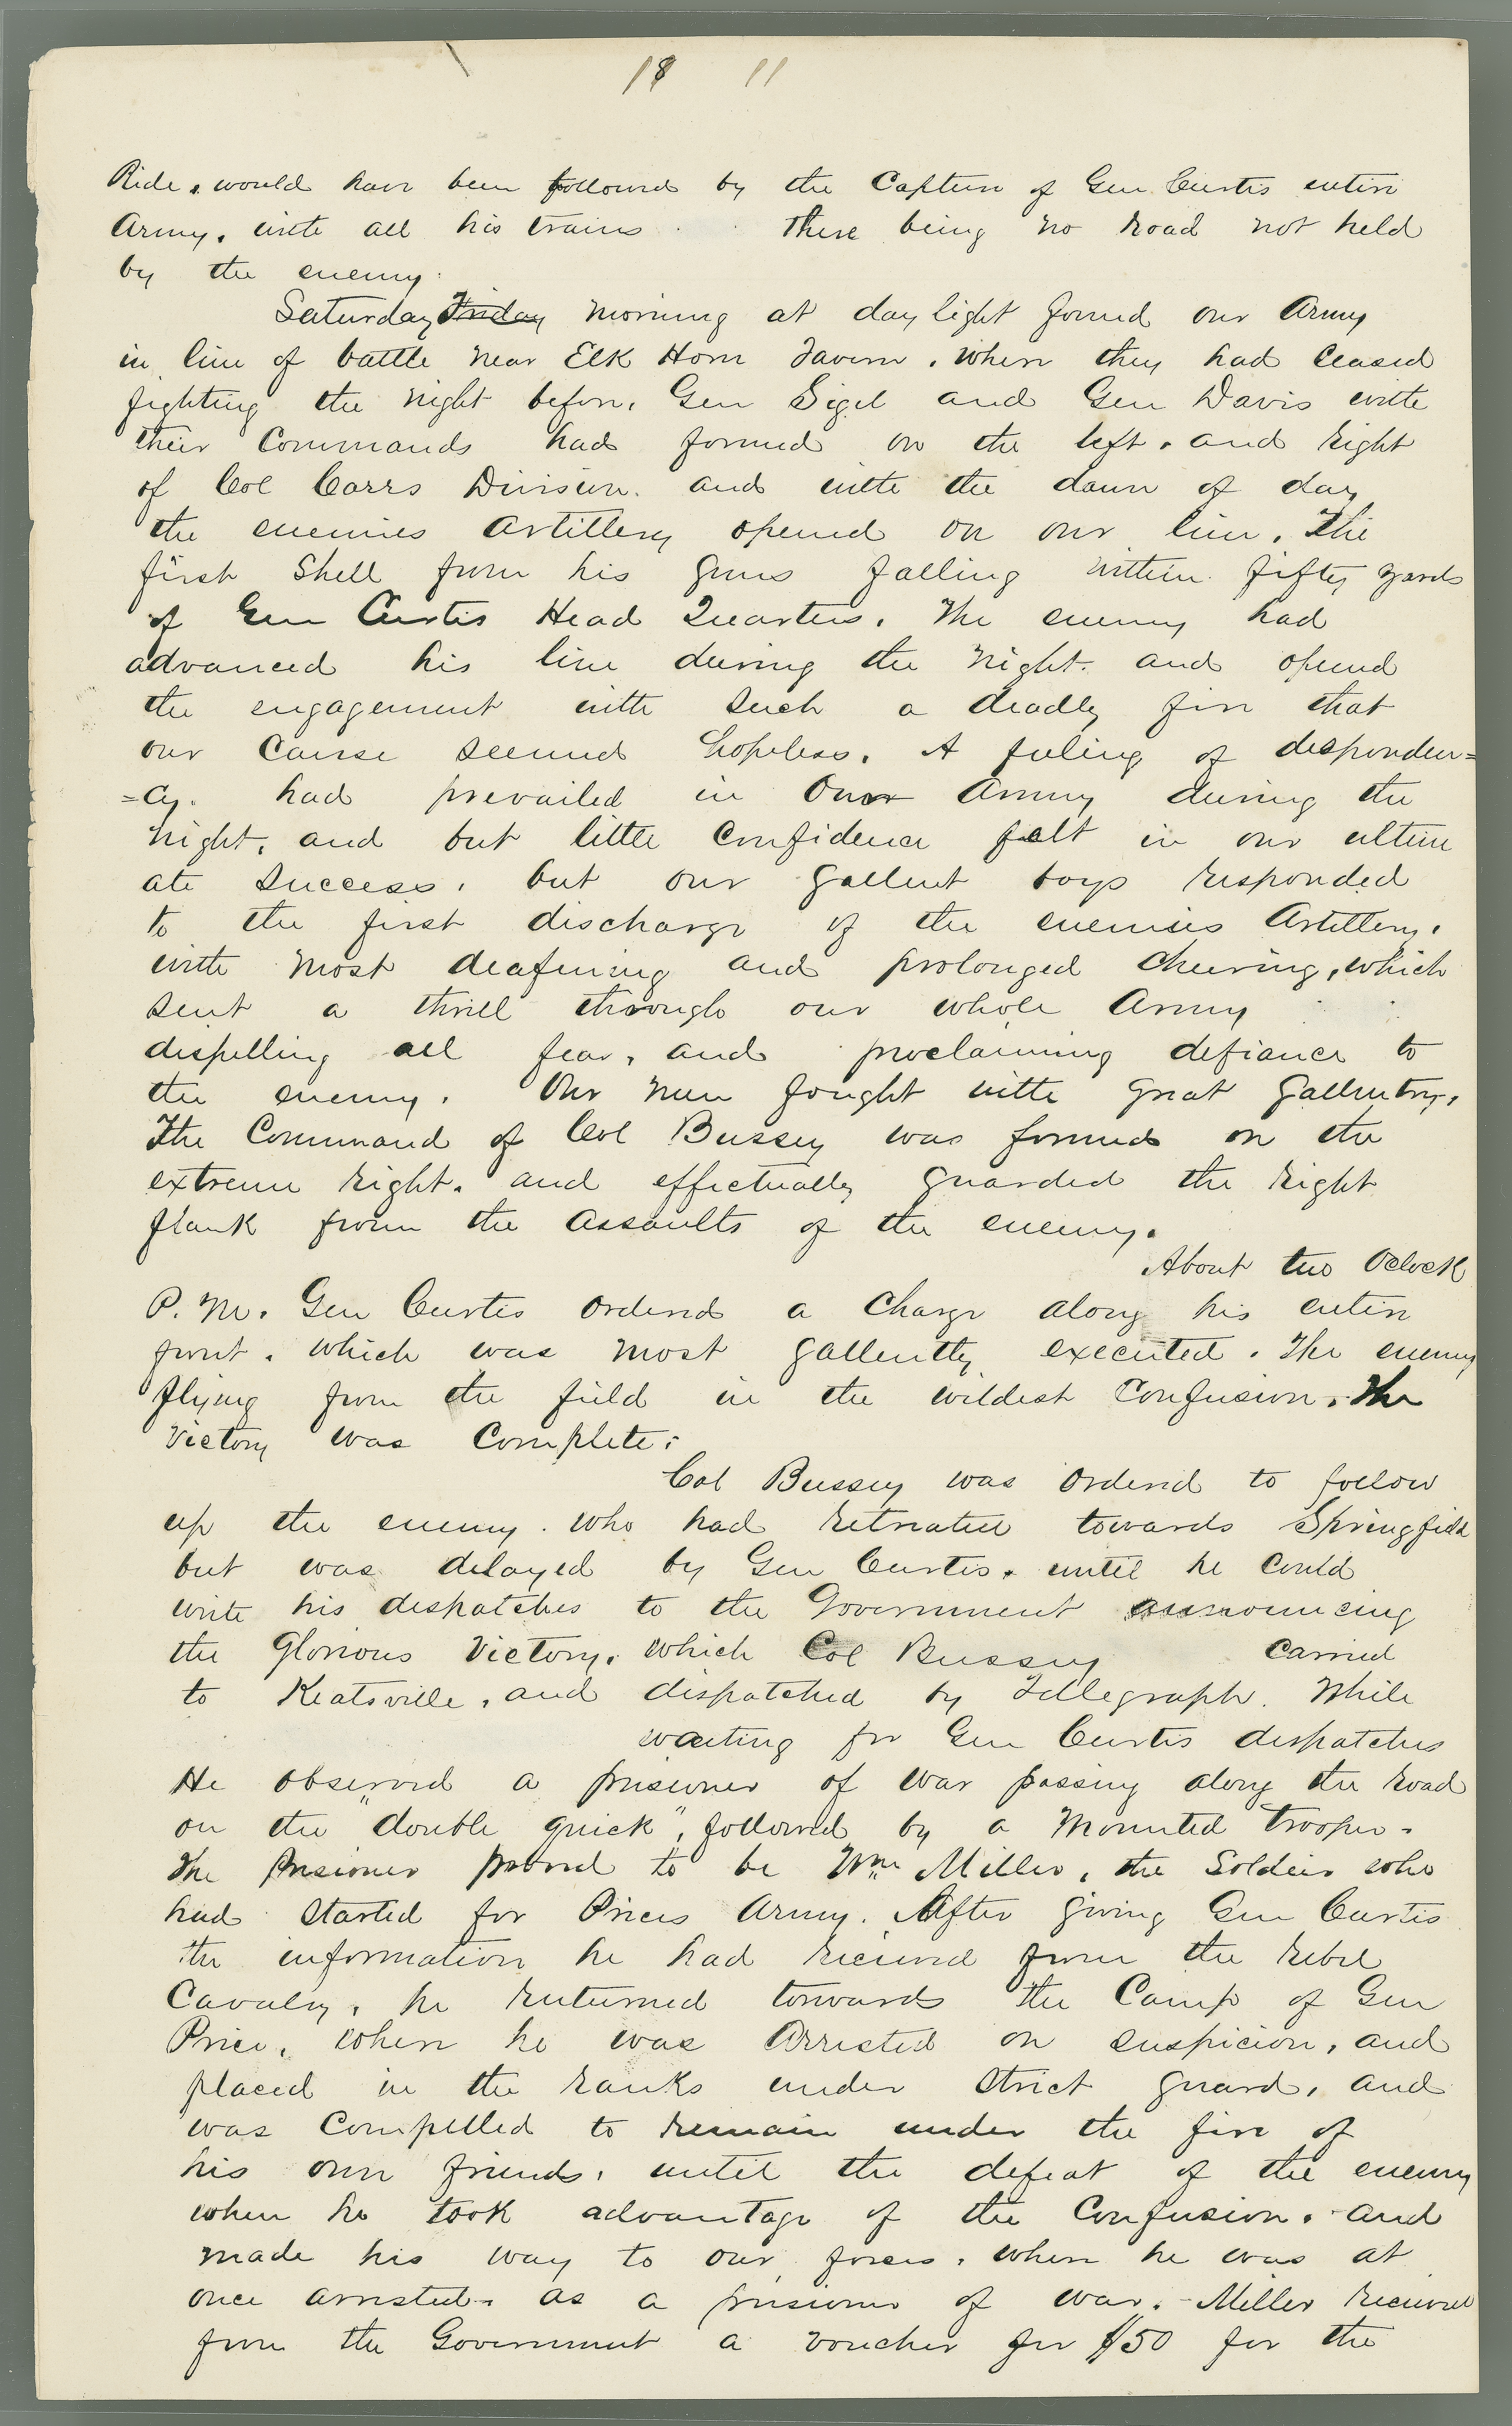 18 11
Ride, would have been followed by the Capture of Gen Curtis entire
Army, with all his trains There being no road not held
by the enemy.
Saturday Friday morning at day light found our Army
in line of battle near Elk Horn Tavern, where they had ceased
fighting the night before, Gen Sigel and Gen Davis with
their Commands had formed on the left, and right
of Col Carrs Division, and with the dawn of day
the enemies Artillery opened on our line, The
first Shell from his guns falling within fifty yards
of Gen Curtis Head Quarters, The enemy had
advanced his line during the night, and opened
the engagement with such a deadly fire that
our Cause seemed hopeless, A feeling of desponden=
=cy. had prevailed in Our Army during the
night, and but little Confidence felt in our ultim
ate success, but our gallent boys responded
to the first discharge of the enemies Artillery,
with most deafening and prolonged cheering, which
sent a thrill through our whole Army
dispelling all fear, and proclaiming defiance to
the enemy. Our men fought with great gallentry,
The Command of Col Bussey was formed on the
extreme right, and effectually guarded the right
flank from the assaults of the enemy.
About two Oclock
P. M. Gen Curtis ordered a Charge along his entire
front, which was most gallently executed. The enemy
flying from the field in the wildest Confusion, The
Victory was Complete.
Col Bussey was ordered to follow
up the enemy. who had retreated towards Springfield
but was delayed by Gen Curtis, until he could
write his dispatches to the Government announcing
the Glorious Victory, which Col Bussey carried
to Keatsville, and dispatched by Tellegraph. While
waiting for Gen Curtis dispatches
He observed a prisioner of war passing along the road
on the "double quick", followed by a Mounted trooper.
The Prisioner proved to be Wm Miller, the Soldier who
had started for Prices Army. After giving Gen Curtis
the information he had recieved from the rebel
Cavalry, he returned towards the Camp of Gen
Price, where he was Arrested on suspicion, and
placed in the ranks under strict guard, and
was Compelled to remain under the fire of
his own friends, until the defeat of the enemy
when he took advantage of the Confusion, and
made his way to our forces, where he was at
once arrested as a prisioner of war. Miller recieved
from the Government a voucher for $50 for the